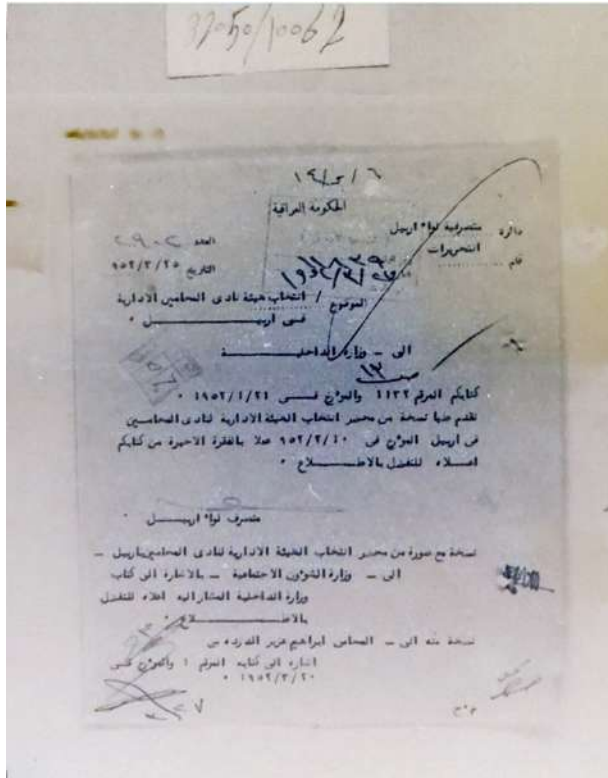 32050/1009
١٤/٣/٦
الحكومة العراقية
دائرة متصرفية لواء اربيل
التحريرات
قلم
العدد ٢٩٠٢
التاريخ ٩٥٢/٣/٢٥
الموضوع / انتخاب هيئة نادى المحامين الادارية
فى اربيـــــل ٠
الى - وزارة الداخليـــــة
كتابكم المرقم ١١٣٢ والمؤرخ فــى ١٩٥٢/١/٢١ ٠
نقدم طيا نسخة من محضر انتخاب الهيئة الادارية لنادى المحامــين
فى اربيل المؤرخ فى ٩٥٢/٢/١٠ عملا بالفقرة الاخيرة من كتابكم
اعــلاه للتفضل بالاطـــــلاع ٠
متصرف لواء اربيـــل ٠
نسخة مع صورة من محضر انتخاب الهيئة الادارية لنادى المحامين باربيل -
الى - وزارة الشؤون الاجتماعية - بالاشارة الى كتاب
وزارة الداخلية المشار اليه اعلاه للتفضل
بالاطـــــلاع ٠
نسخة منه الى - المحامى ابراهيم عزيز
اشارة الى كتابه المرقم ١ والمؤرخ فــى
١٩٥٢/٣/٢٠ ٠